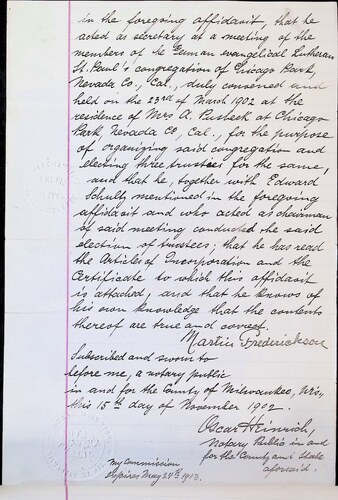 in the foregoing affidavit, that he
acted as secretary at a meeting of the
members of the German evangelical Lutheran
St. Paul's congregation of Chicago Park,
Nevada Co., Cal., duly convened and
held on the 23rd of March 1902 at the
residence of Mrs A. Pusheck at Chicago
Park, Nevada Co, Cal., for the purpose
of organizing said congregation and
electing three trustees for the same,
and that he, together with Edward
Schultz mentioned in the foregoing
affidavit and who acted as chairman
of said meeting conducted the said
election of trustees; that he has read
the Articles of Incorporation and the
Certificate to which this affidavit
is attached, and that he knows of
his own knowledge that the contents
thereof are true and correct.
Martin Frederickson
Subscribed and sworn to
before me, a notary public
in and for the County of Milwaukee, Wis.,
this 15th day of November 1902.
Oscar Heinrich,
Notary Public in and
for the County and State
aforesaid.
My commission
expires May 24th 1903.